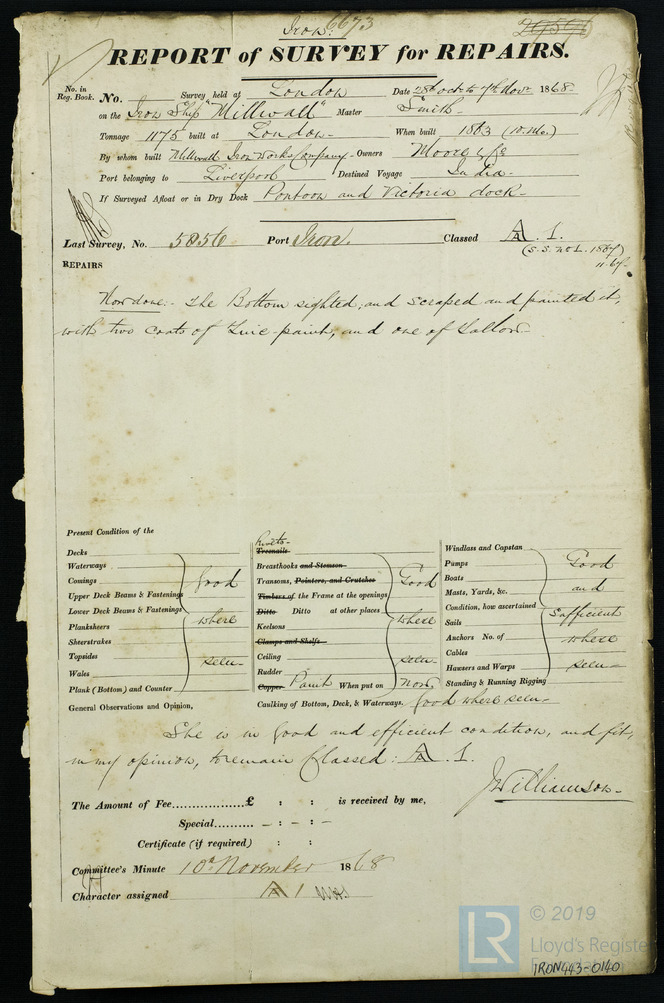 Iron. 6673
REPORT of SURVEY for REPAIRS.
No. in Reg. Book. No. Survey held at London Date 28th Oct to 7th Novr 1868
on the Iron Ship "Millwall" Master Smith
Tonnage 1175 built at London When built 1863 (10.mo.)
By whom built Millwall Iron Works Company Owners Moore & Co
Port belonging to Liverpool Destined Voyage India
If Surveyed Afloat or in Dry Dock Pontoon and Victoria dock
Last Survey, No. 5856 Port Iron. Classed A.1.
(S.S. No 1. 1867)
11.67
REPAIRS
Now done:- The Bottom sighted, and scraped and painted it,
with two coats of Zinc paint, and one of Tallow
Present Condition of the
Decks
Waterways
Comings
Upper Deck Beams & Fastenings
Lower Deck Beams & Fastenings
Planksheers
Sheerstrakes
Topsides
Wales
Plank (Bottom) and Counter
Good
where
seen
Rivets
Treenails
Breasthooks and Stemson
Transoms, Pointers, and Crutches
Timbers of the Frame at the openings
Ditto Ditto at other places
Keelsons
Clamps and Shelfs
Ceiling
Rudder
Copper Paint When put on Now.
Good
where
seen
Caulking of Bottom, Deck, & Waterways. Good where seen
Windlass and Capstan
Pumps
Boats
Masts, Yards, &c.
Condition, how ascertained
Sails
Anchors No. of
Cables
Hawsers and Warps
Standing & Running Rigging
Good
and
Sufficient
where
seen
General Observations and Opinion,
She is in good and efficient condition, and fit,
in my opinion, to remain Classed: A.1.
J Williamson
The Amount of Fee £ : : is received by me,
Special - : - : -
Certificate (if required) : :
Committee's Minute 10th November 1868
Character assigned A 1
LR © 2019
Lloyd's Register
Foundation
IRON443-0140